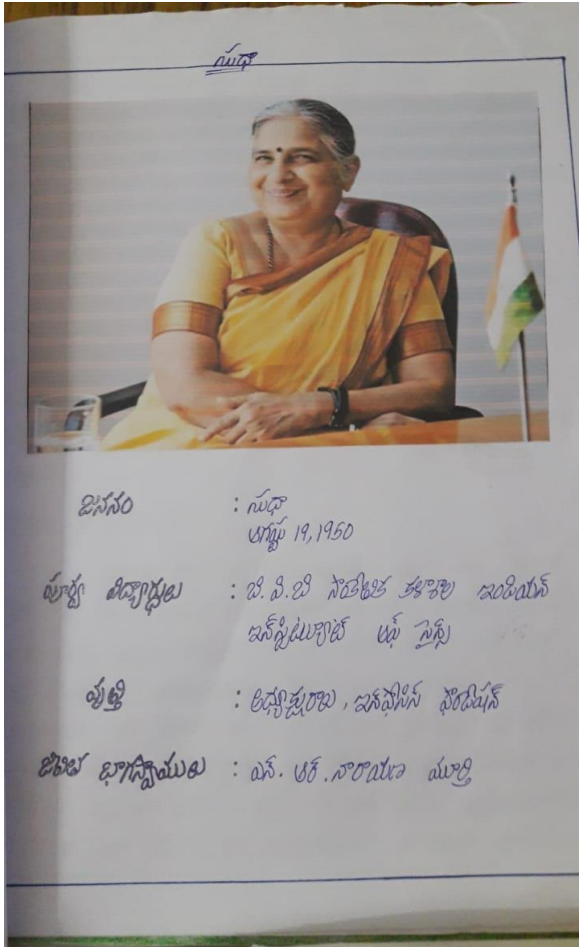 సుధా
జననం : సుధా
ఆగష్టు 19, 1950
పూర్వ విద్యార్థులు : బి.వి.బి సాంకేతిక కళాశాల ఇండియన్
ఇన్‌స్టిట్యూట్ ఆఫ్ సైన్స్
వృత్తి : అధ్యక్షురాలు, ఇన్ఫోసిస్ ఫౌండేషన్
జీవిత భాగస్వాములు : ఎన్. ఆర్. నారాయణ మూర్తి